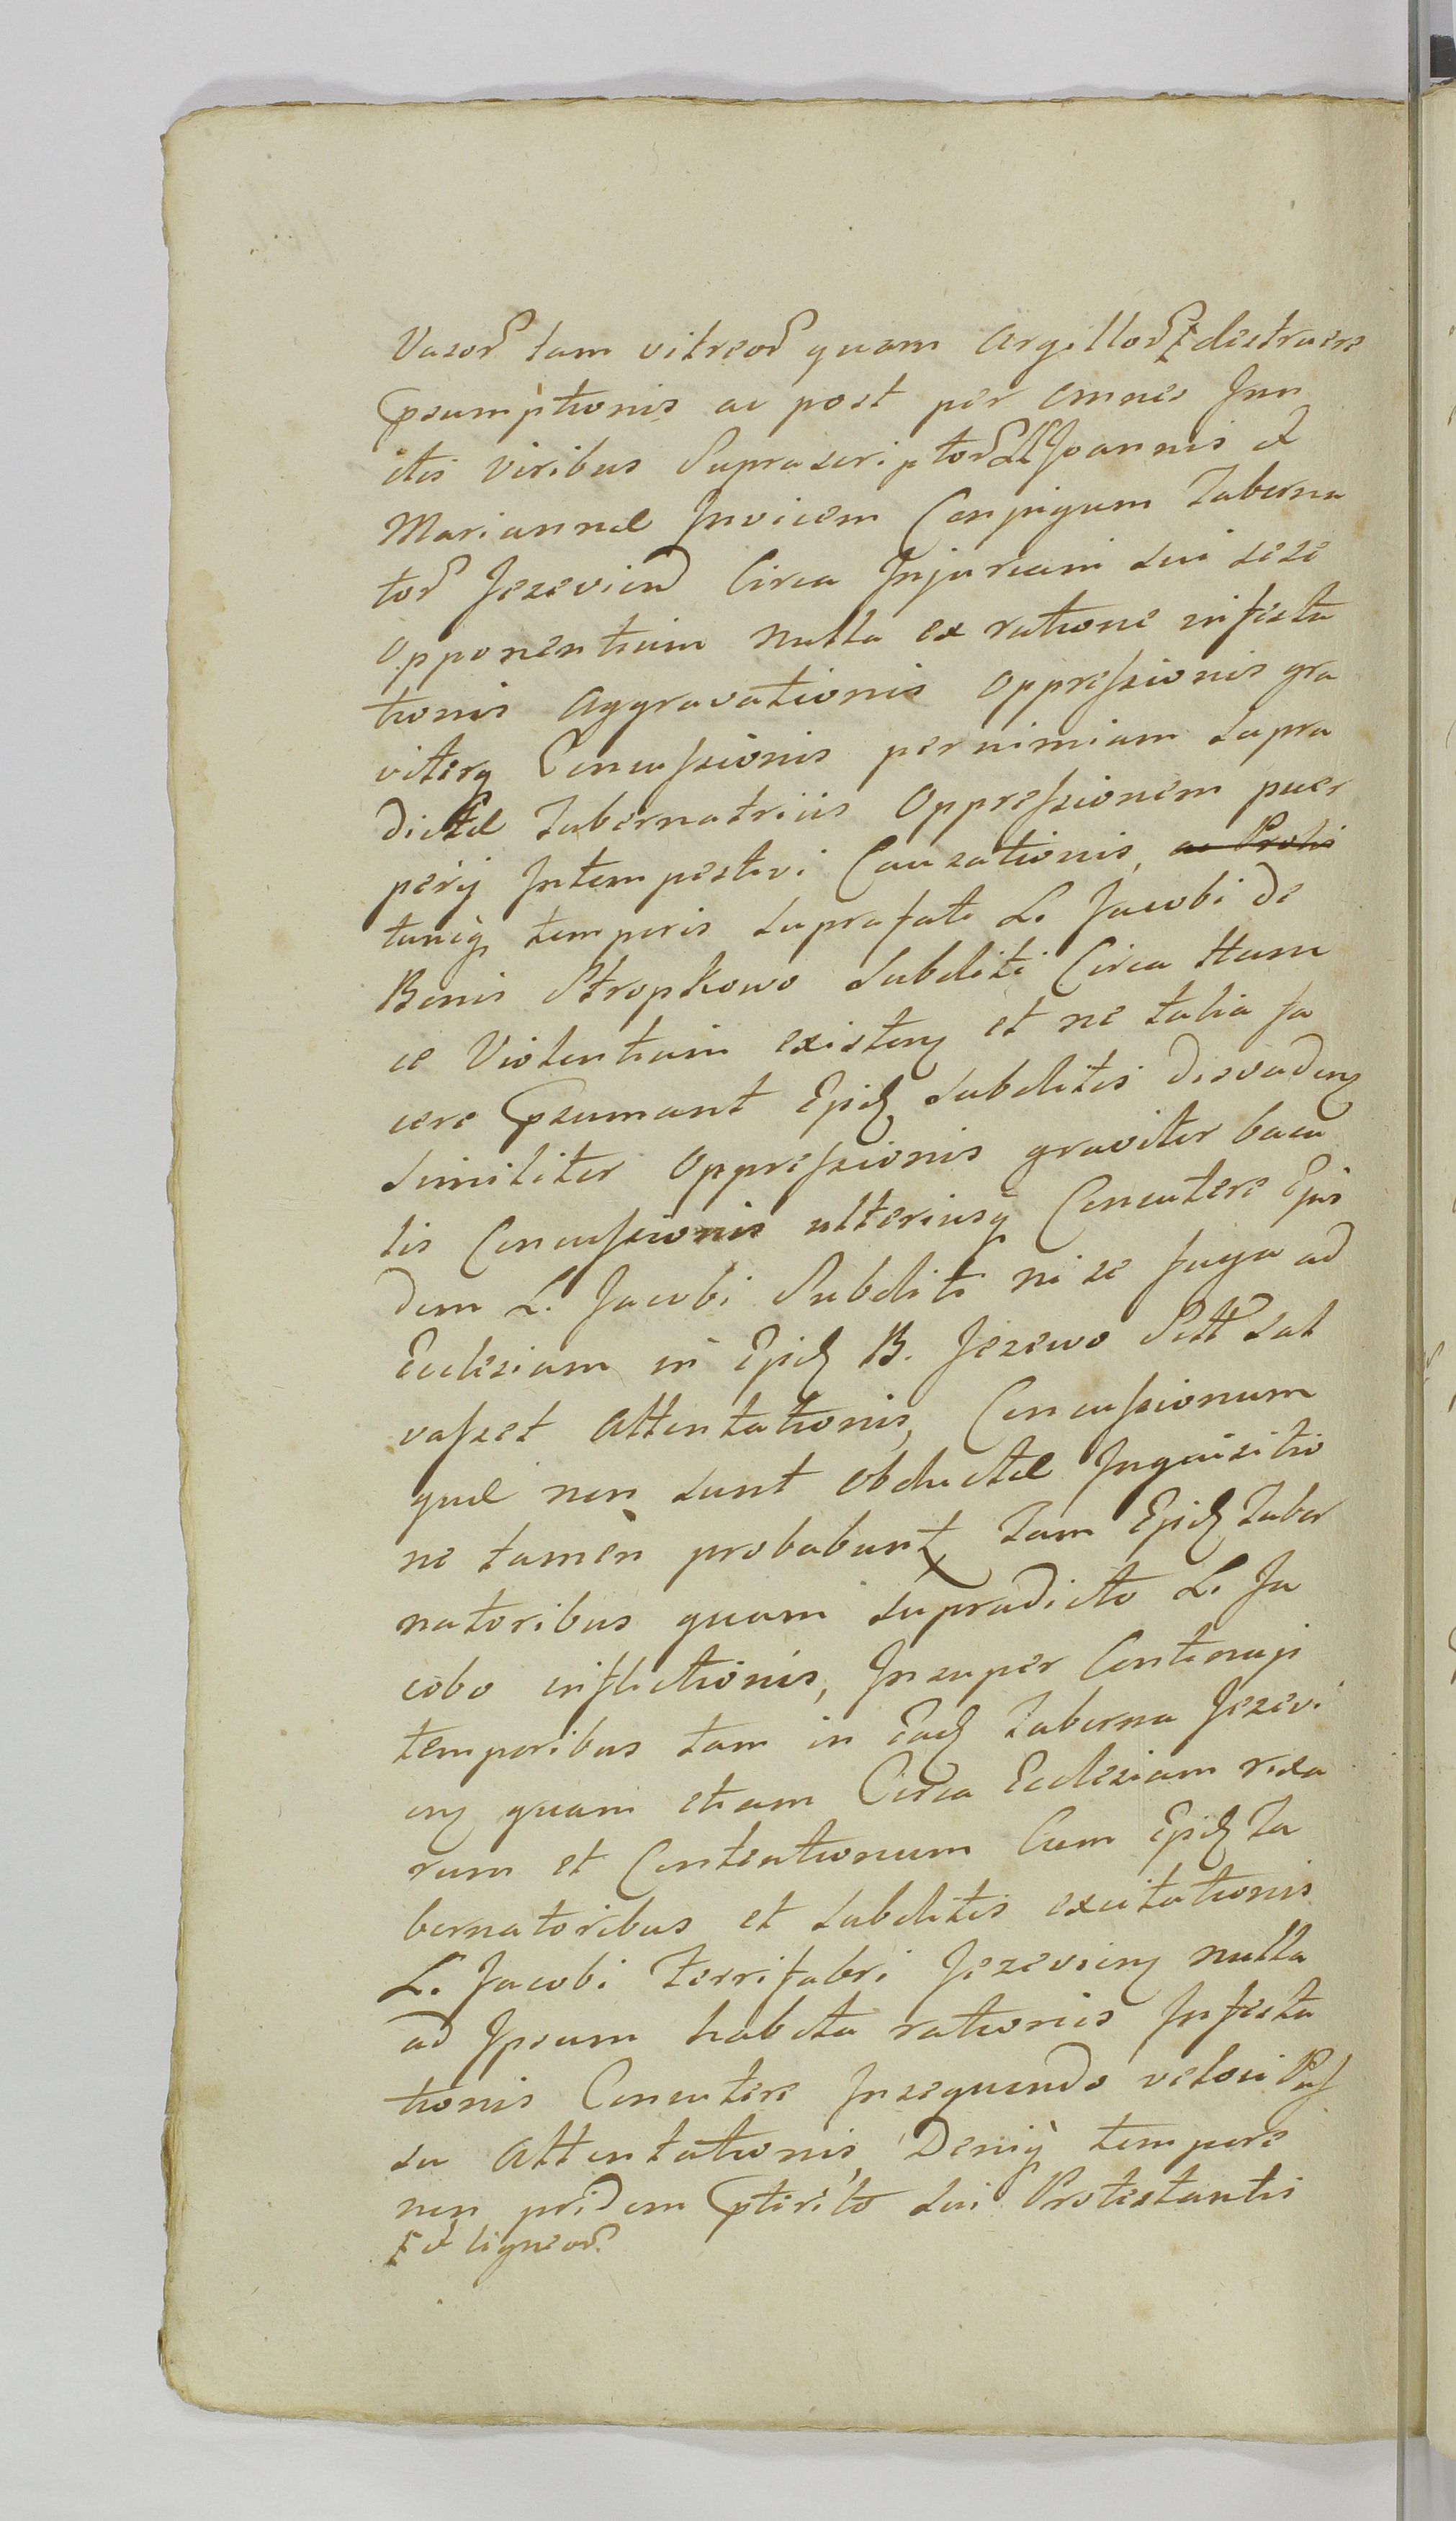 Vasor tam vitreor quam Argillor destruere
Psumptionis ac post per omnes Inn
itis viribus Suprascriptor LL Joannis et
Mariannae Invicem Conjugum Taberna
tor Jezevien Circa Injuriam sui sese
opponentium nulla ex ratione infesta
tionis Aggravationis oppressionis gra
viterq Concussionis per nimiam supra
dictae Tabernatricis oppressionem puer
perij Intempestivi Causationis, ac Prolis
tuncq temporis suprafati L. Jacobi de
Bonis Stropkowo subditi Circa Ham
ce Violentiam existen et ne talia fa
cere Psumant Ejsd subditis disvaden
similiter oppressionis graviter bacu
lis Concussionis ulteriusq Concutere Ejus
dem L. Jacobi Subditi ni se fuga ad
Ecclesiam in Ejsd B. Jezewo Sitt sal
vasset attentationis, Concussionum
quae non sunt obductae Inquisitio
ne tamen probabunt Tam Ejsd Taber
natoribus quam supradicto L. Ja
cobo inflictionis, Insuper Continuji
temporibus tam in Ead Taberna Jezevi
en quam etiam Circa Ecclesiam rixa
rum et Contentionum Cum Ejsd Ta
bernatoribus et subditis excitationis
L. Jacobi Ferrifabri Jezevien nulla
ad Ipsum habita rationis Infesta
tionis Concutere Insequendo veloci Pas
su Attentationis, Deniq tempore
non pridem Pterito sui Protestantis
et ligneor